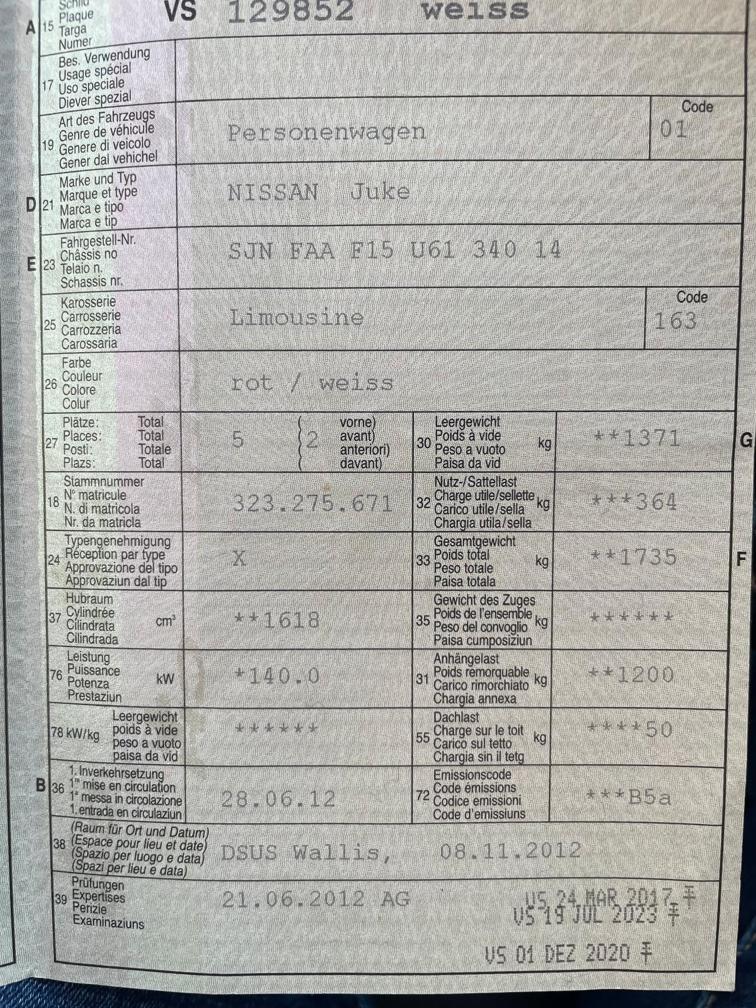 A 15 Schild VS 129852 weiss
Plaque
Targa
Numer
17 Bes. Verwendung
Usage spécial
Uso speciale
Diever spezial
19 Art des Fahrzeugs Code
Genre de véhicule Personenwagen 01
Genere di veicolo
Gener dal vehichel
D 21 Marke und Typ
Marque et type NISSAN Juke
Marca e tipo
Marca e tip
E 23 Fahrgestell-Nr.
Châssis no SJN FAA F15 U61 340 14
Telaio n.
Schassis nr.
25 Karosserie Code
Carrosserie Limousine 163
Carrozzeria
Carossaria
26 Farbe
Couleur rot / weiss
Colore
Colur
27 Plätze: Total 5 (2 vorne)
Places: Total avant)
Posti: Totale anteriori)
Plazs: Total davant)
30 Leergewicht kg **1371 G
Poids à vide
Peso a vuoto
Paisa da vid
18 Stammnummer
N° matricule 323.275.671
N. di matricola
Nr. da matricla
32 Nutz-/Sattellast
Charge utile/sellette kg ***364
Carico utile/sella
Chargia utila/sella
24 Typengenehmigung
Réception par type X
Approvazione del tipo
Approvaziun dal tip
33 Gesamtgewicht
Poids total kg **1735 F
Peso totale
Paisa totala
37 Hubraum
Cylindrée cm³ **1618
Cilindrata
Cilindrada
35 Gewicht des Zuges
Poids de l'ensemble kg ******
Peso del convoglio
Paisa cumposiziun
76 Leistung
Puissance kW *140.0
Potenza
Prestaziun
31 Anhängelast
Poids remorquable kg **1200
Carico rimorchiato
Chargia annexa
78 kW/kg Leergewicht ******
poids à vide
peso a vuoto
paisa da vid
55 Dachlast
Charge sur le toit kg ****50
Carico sul tetto
Chargia sin il tetg
B 36 1. Inverkehrsetzung
1re mise en circulation 28.06.12
1a messa in circolazione
1. entrada en circulaziun
72 Emissionscode
Code émissions ***B5a
Codice emissioni
Code d'emissiuns
38 (Raum für Ort und Datum)
(Espace pour lieu et date) DSUS Wallis, 08.11.2012
(Spazio per luogo e data)
(Spazi per lieu e data)
39 Prüfungen 21.06.2012 AG VS 24 MAR 2017
Expertises VS 19 JUL 2023
Perizie
Examinaziuns
VS 01 DEZ 2020